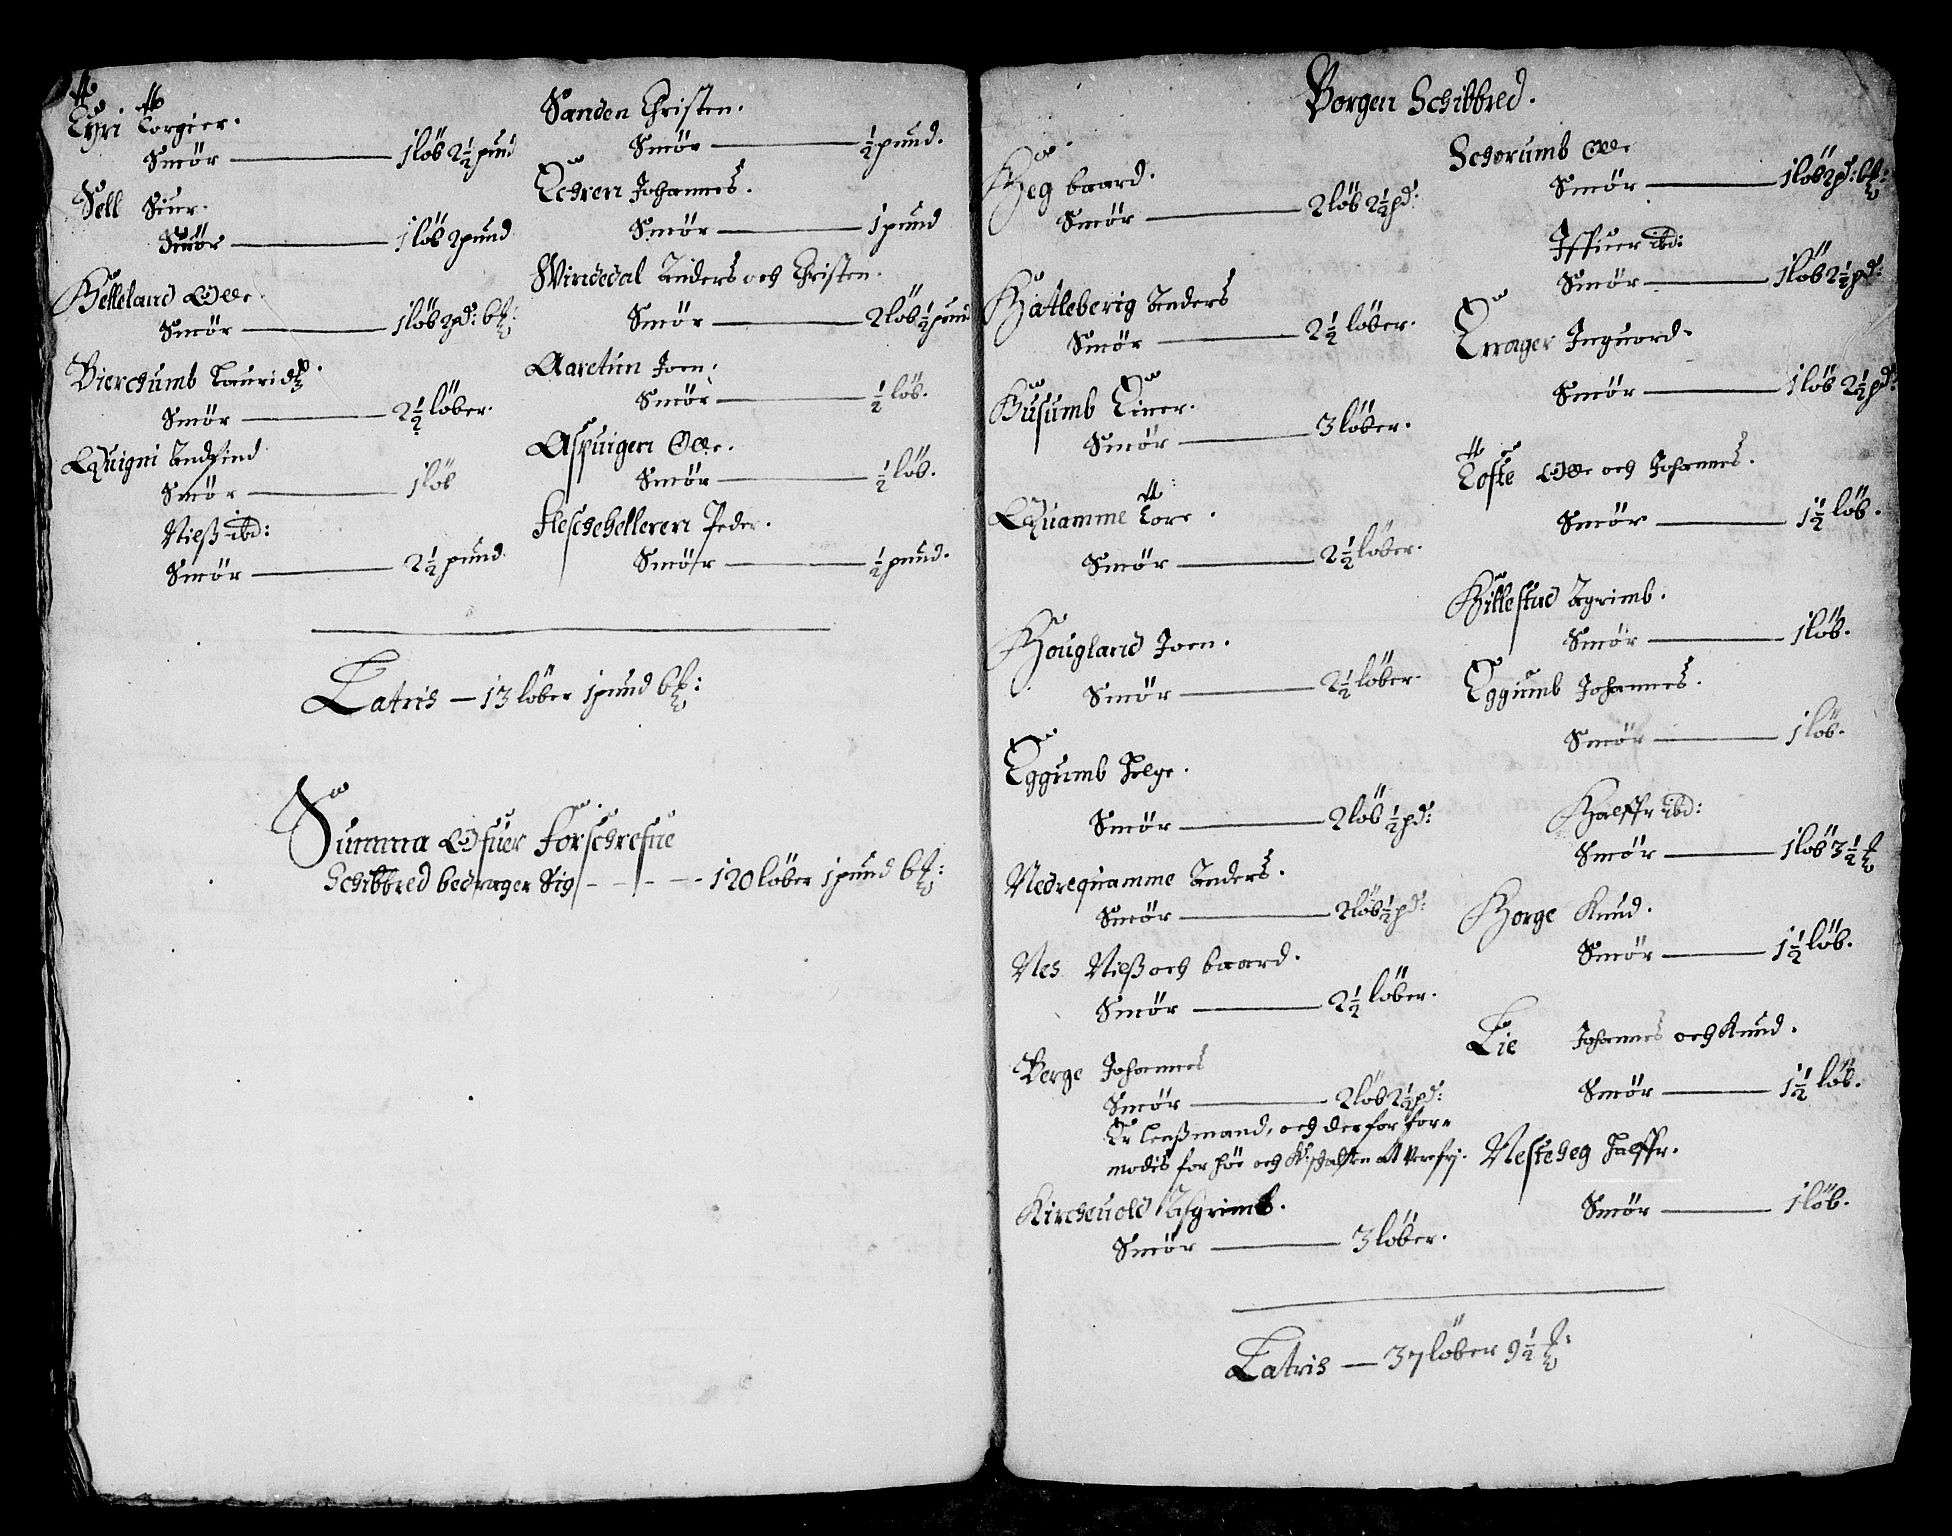 Tyri Torgier.
Smör — 1 löb 2½ pund
Sell Siur.
Smör — 1 löb 2 pund
Helleland Olle.
Smör — 1 löb 2 pd: 6 ℔:
Bierchumb Lauridtz.
Smör — 2½ löber.
Quigni Andfind
Smör — 1 löb
Nielß ibd:
Smör — 2½ pund
Sanden Christen.
Smör — ½ pund.
Echren Johannes.
Smör — 1 pund
Windedal Anders och Christen.
Smör — 2 löb ½ pund
Aaretun Joen:
Smör — ½ löb.
Aspuigen Olle.
Smör — ½ löb.
Fleschehelleren Peder.
Smör — ½ pund.
Latris — 13 löber 1 pund 6 ℔:
Summa Ofuer Forschrefne
Schibbred bedrager Sig - - - - 120 löber 1 pund 6 ℔:
Borgen Schibbred.
Heg baard.
Smör — 2 löb 2½ pd:
Hatleberig Anders
Smör — 2½ löber.
Husumb Einer.
Smör — 3 löber.
Quamme Tore.
Smör — 2½ löber.
Hougland Joen.
Smör — 2½ löber.
Eggumb Helge.
Smör — 2 löb ½ pd:
Nedrequamme Anders.
Smör — 2 löb ½ pd:
Nes Nielß och baard.
Smör — 2½ löber.
Berge Johannes
Smör — 2 löb 2½ pd:
Er lenßmand, och derfor for=
modis for höe och schatten at Vere fri.
Kircheuold Asgrimb.
Smör — 3 löber.
Schorumb Olle
Smör — 1 löb 2 pd: 6 ℔:
Iffuer ibd:
Smör — 1 löb 2½ pd:
Errager Inguord.
Smör — 1 löb 2½ pd:
Tofte Olle och Johannes.
Smör — 1½ löb.
Hillestad Agrimb.
Smör — 1 löb.
Eggumb Johannes.
Smör — 1 löb.
Halffr ibd:
Smör — 1 löb 3½ ℔
Horge Knud.
Smör — 1½ löb.
Lie Johannes och Knud.
Smör — 1½ löb.
Nesteheg Halffr.
Smör — 1 löb.
Latris — 37 löber 9½ ℔: